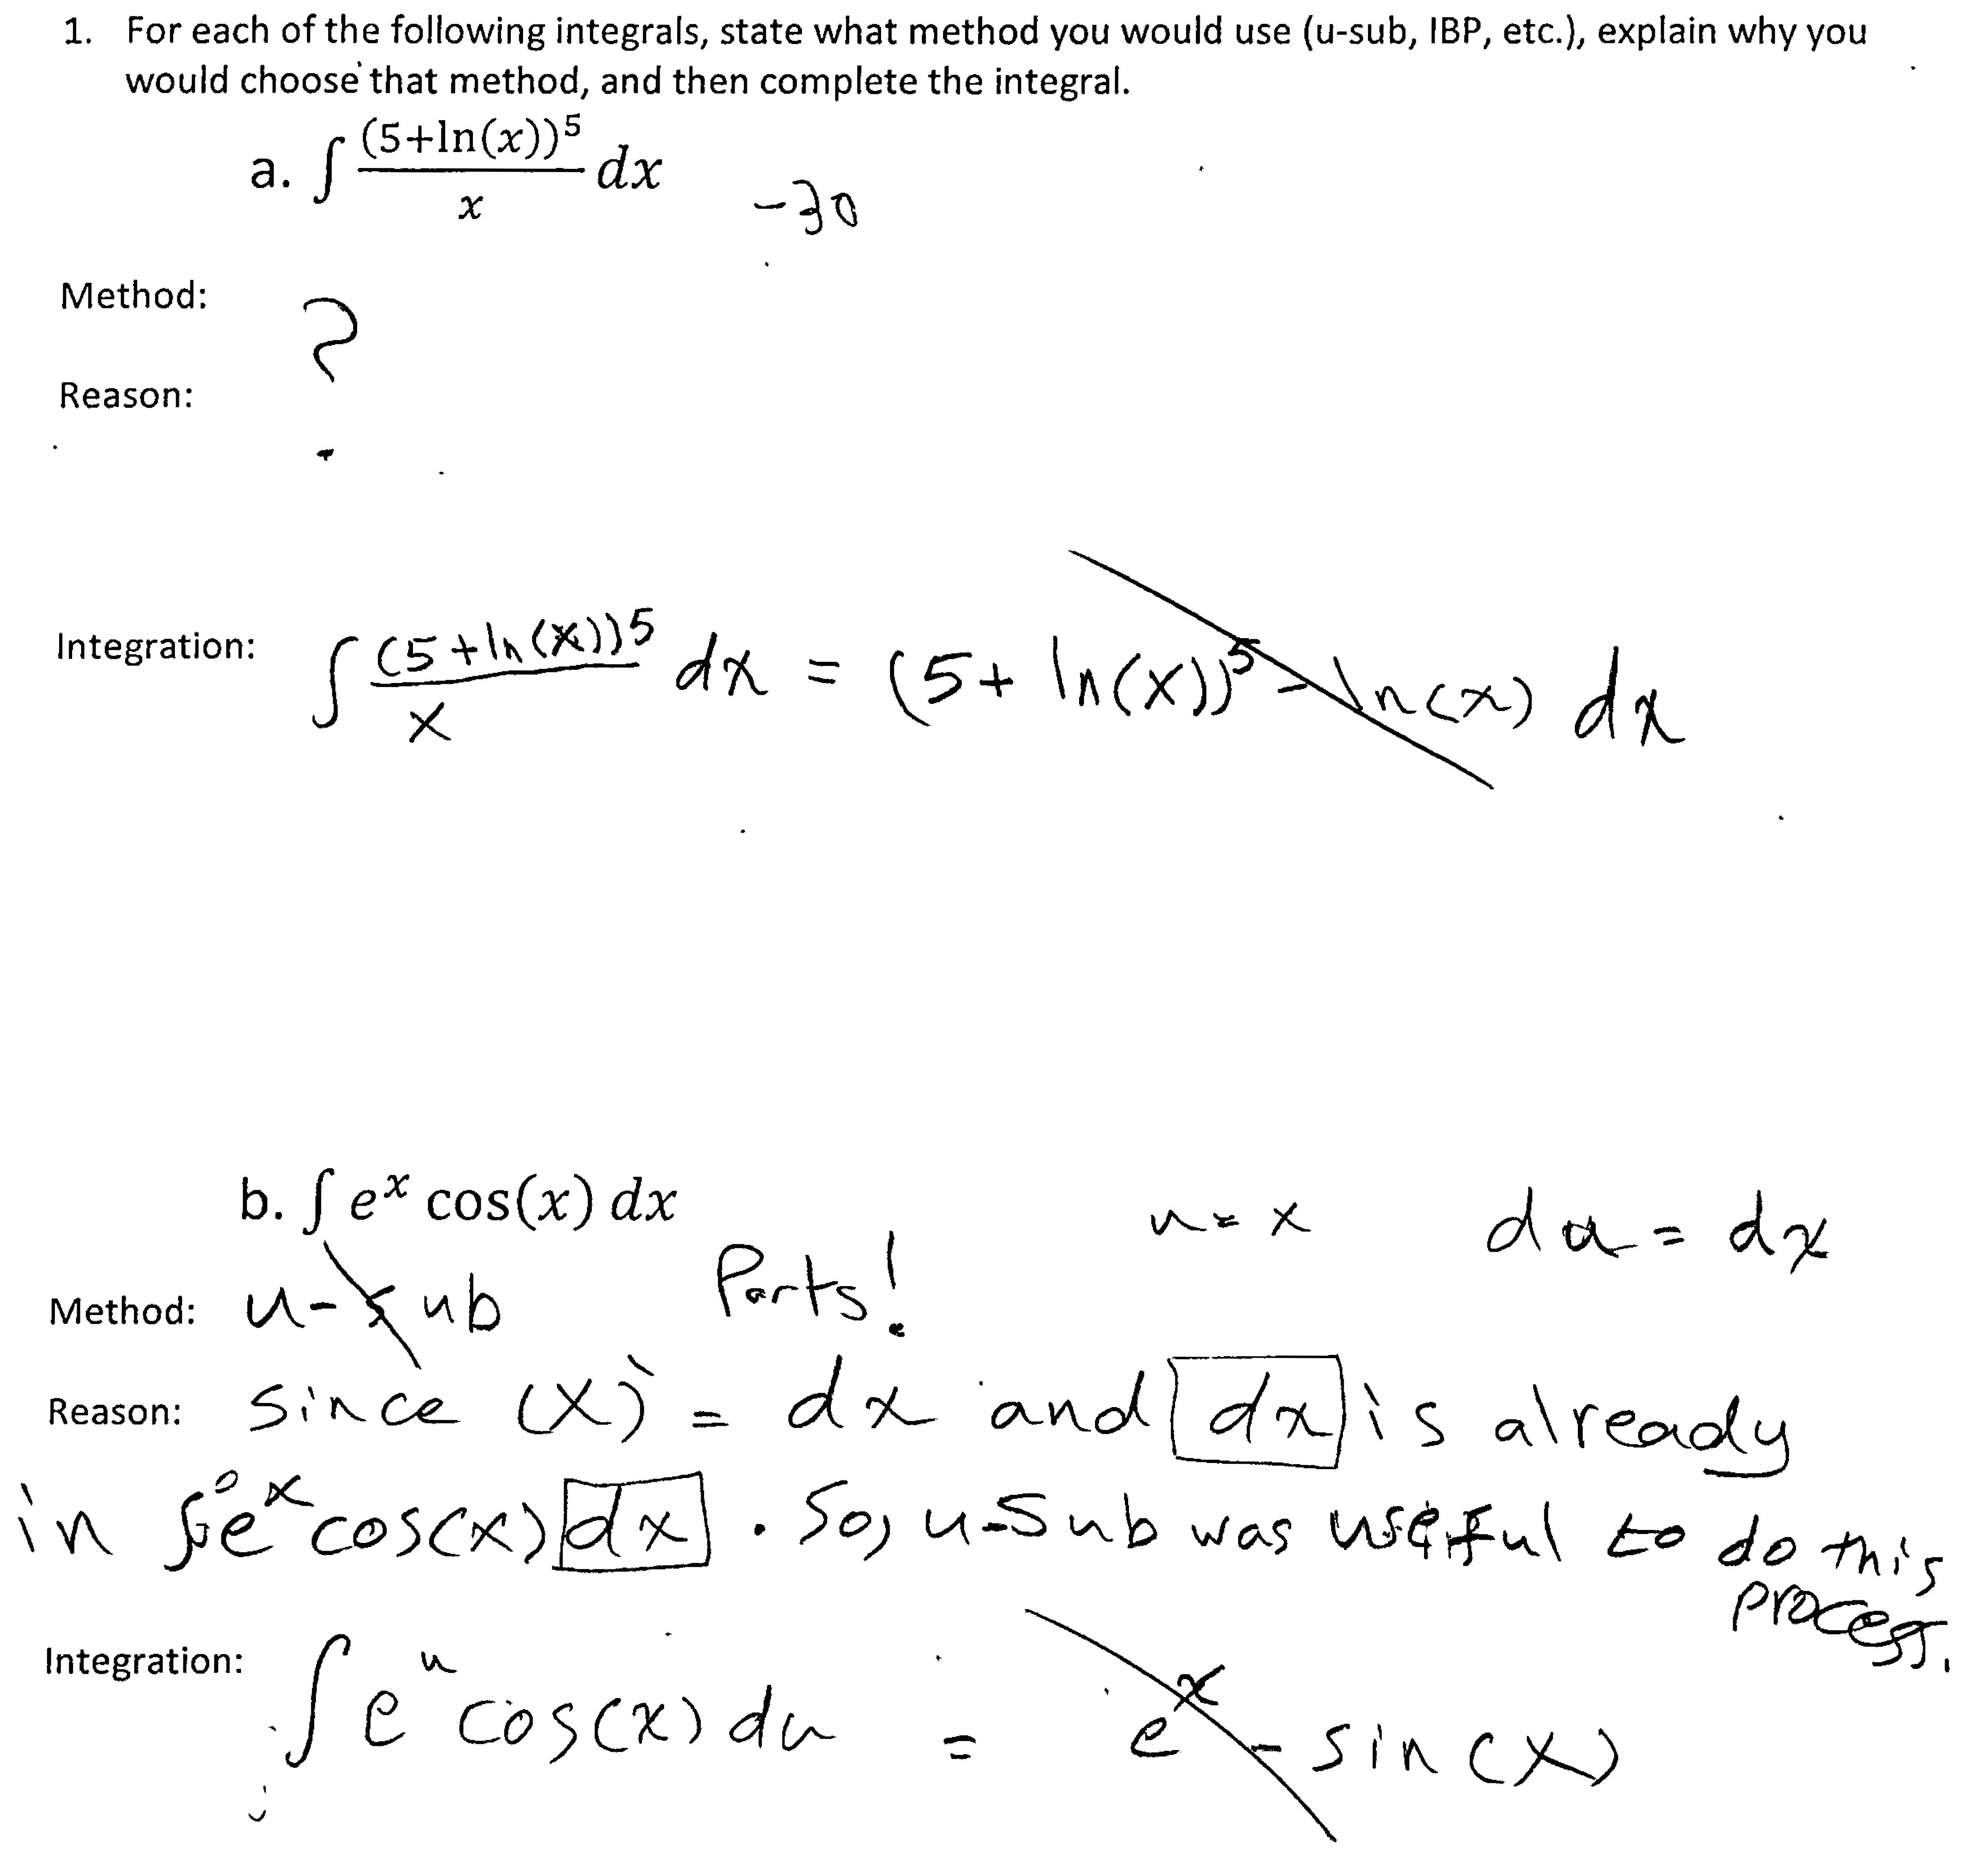 1. For each of the following integrals, state what method you would use (u-sub, IBP, etc.), explain why you
would choose that method, and then complete the integral.
a. ∫ (5+ln(x))⁵/x dx
-30
Method:
?
Reason:
Integration: ∫ (5+ln(x))⁵/x dx = (5+ ln(x))⁵ - ln(x) dx
b. ∫ eˣ cos(x) dx u=x du = dx
Method: u-sub Parts!
Reason: Since (x)' = dx and dx is already
in ∫eˣ cos(x) dx. So, u-sub was useful to do this
process.
Integration: ∫ eᵘ cos(x) du = eˣ - sin(x)